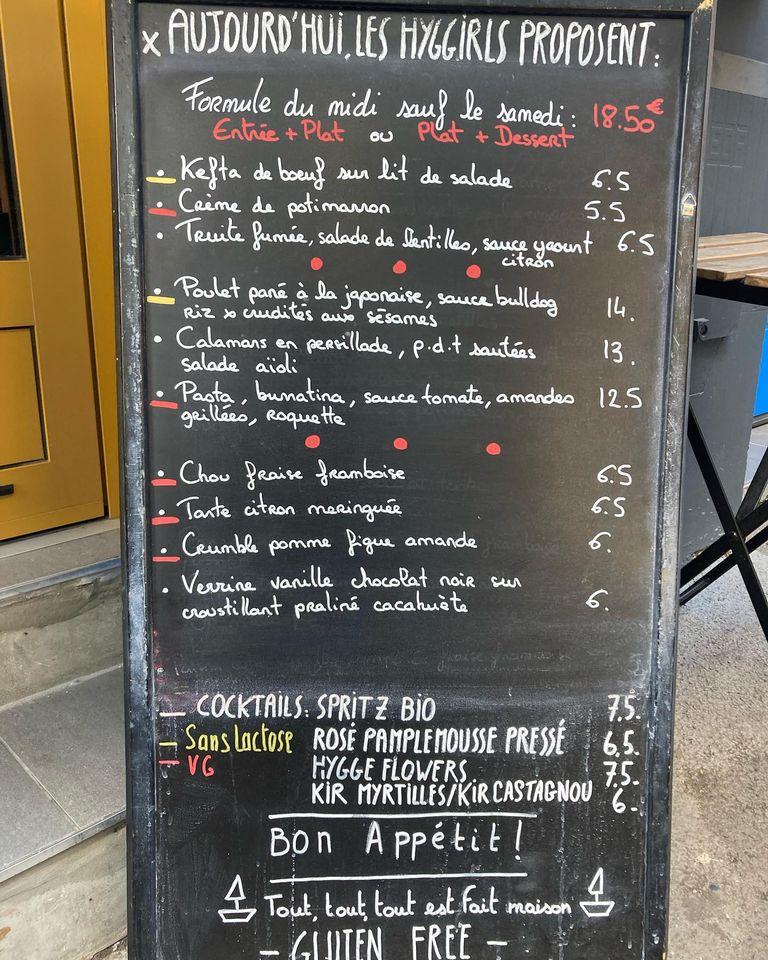 x AUJOURD'HUI, LES HYGGIRLS PROPOSENT:
Formule du midi sauf le samedi: 18.50€
Entrée + Plat ou Plat + Dessert
• Kefta de boeuf sur lit de salade 6.5
• Crème de potimarron 5.5
• Truite fumée, salade de lentilles, sauce yaourt 6.5
citron
• Poulet pané à la japonaise, sauce bulldog
riz x crudités aux sésames 14.
• Calamars en persillade, p.d.t sautées 13.
salade aïoli
• Pasta, burratina, sauce tomate, amandes 12.5
grillées, roquette
• Chou fraise framboise 6.5
• Tarte citron meringuée 6.5
• Crumble pomme figue amande 6.
• Verrine vanille chocolat noir sur
croustillant praliné cacahuète 6.
— COCKTAILS: SPRITZ BIO 7.5.
— Sans lactose ROSÉ PAMPLEMOUSSE PRESSÉ 6,5.
— VG HYGGE FLOWERS 7.5-
KIR MYRTILLES/KIR CASTAGNOU 6-
Bon Appétit!
Tout, tout, tout est fait maison
- GLUTEN FREE -